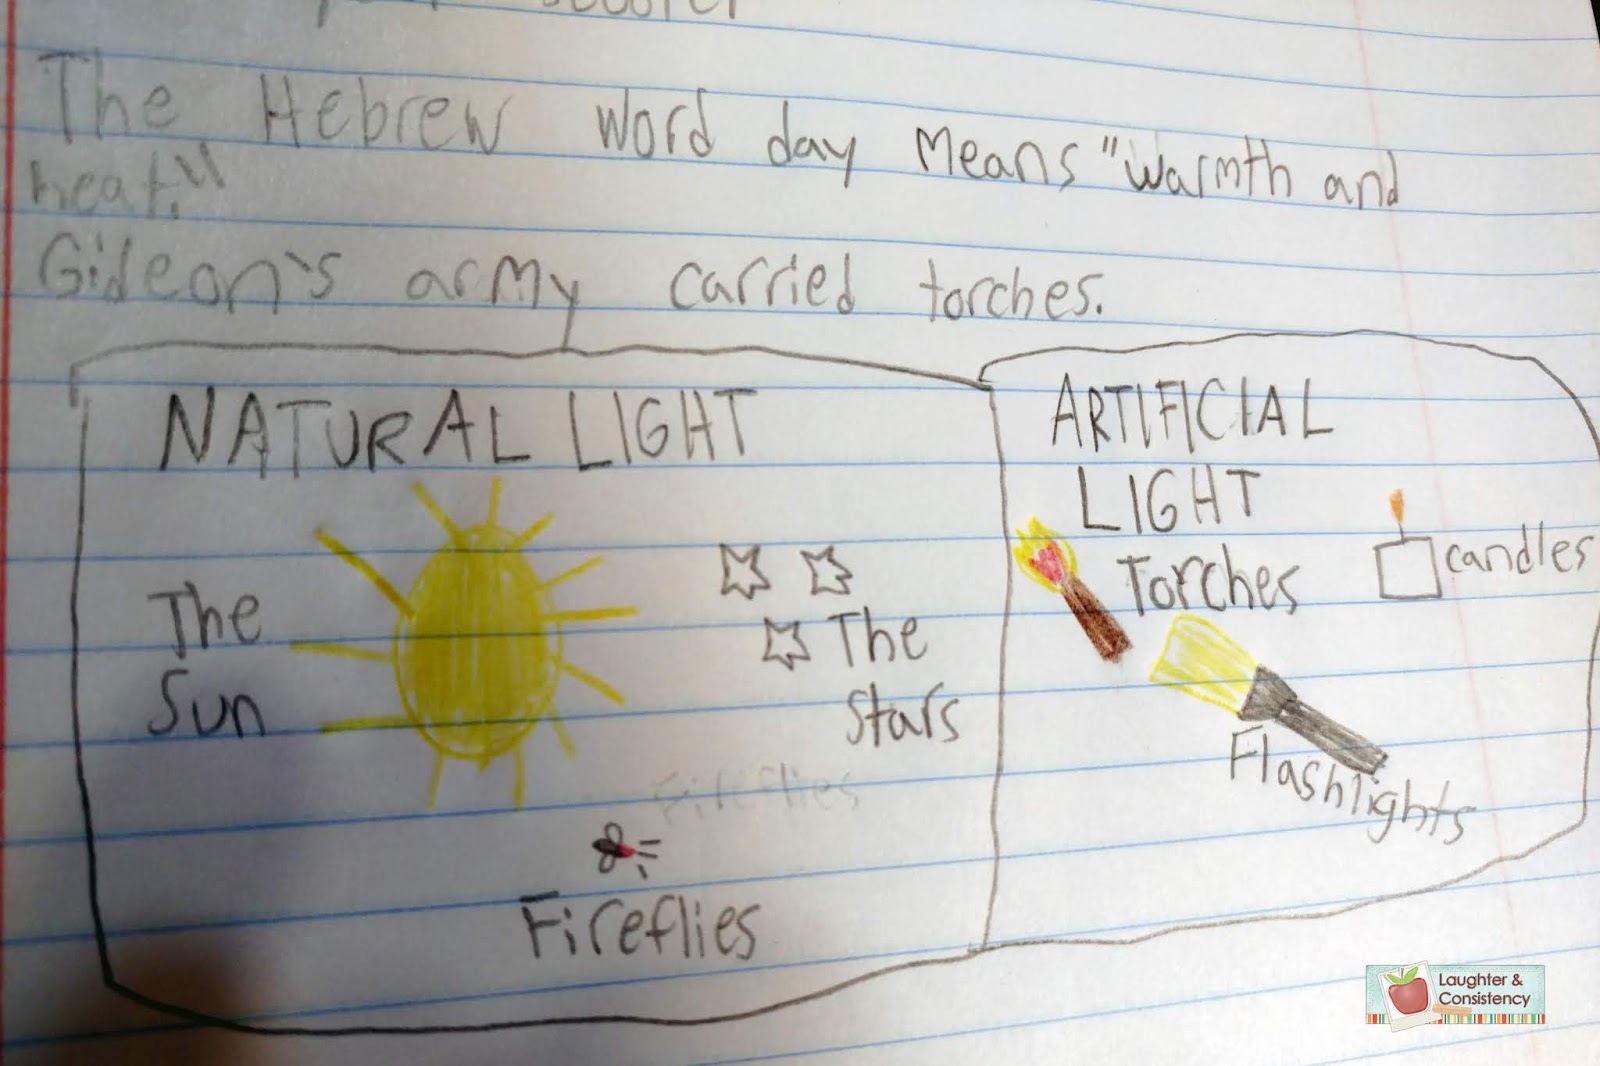 The Hebrew word day means "warmth and
heat."
Gideon's army carried torches.
NATURAL LIGHT
The
Sun
The
Stars
Fireflies
Fireflies
ARTIFICIAL
LIGHT
Torches
candles
Flashlights
Laughter &
Consistency